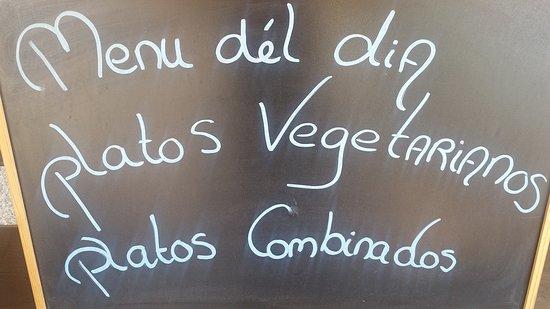 Menu dél diA
platos VegetARiANOS
platos Combinados